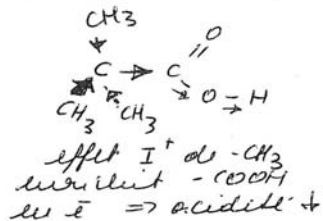 CH3
O
C → C
O → H
CH3 CH3
effet I+ de -CH3
enrichit -COOH
en ē ⇒ acidité ↓